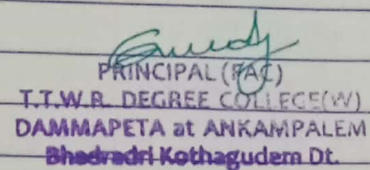 PRINCIPAL (FAC)
T.T.W.R. DEGREE COLLEGE(W)
DAMMAPETA at ANKAMPALEM
Bhadradri Kothagudem Dt.